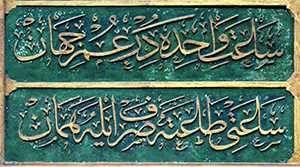 ساعت واحده در عمر جهان
ساعتی طاعته صرف ایله همان